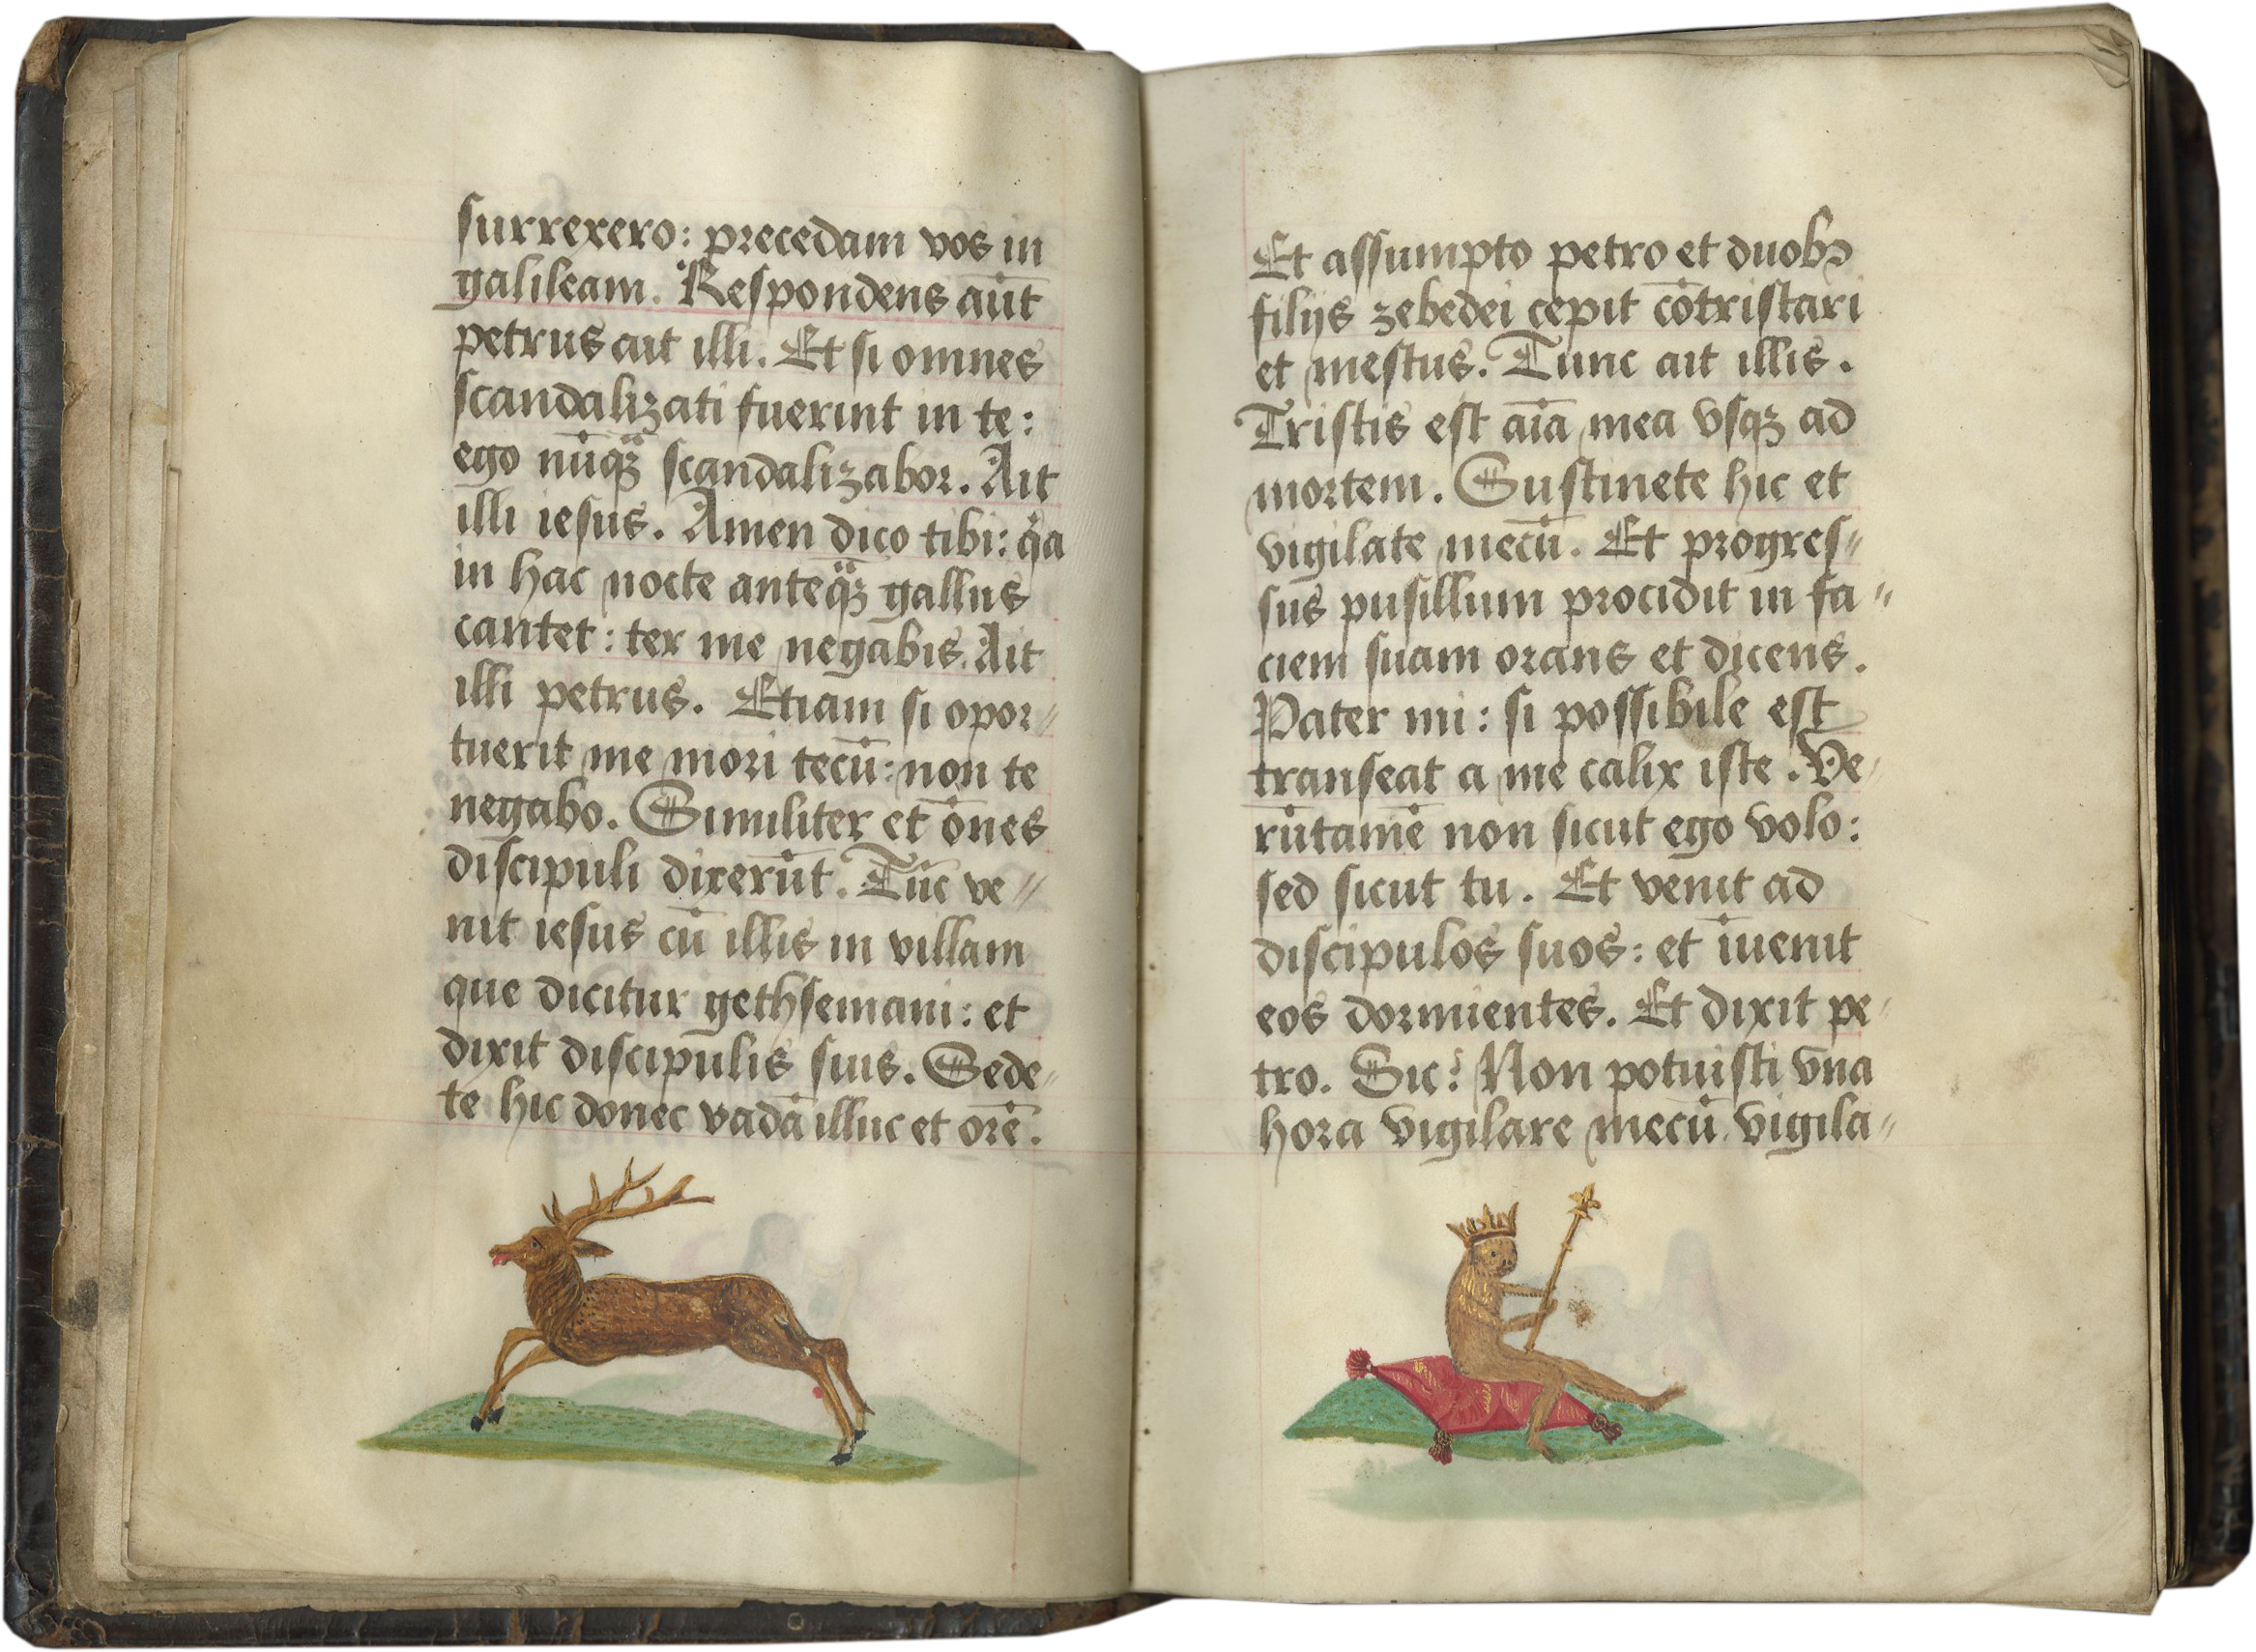 surrexero: precedam vos in
galileam. Respondens aūt
petrus ait illi. Et si omnes
scandalizati fuerint in te:
ego nūqꝫ scandalizabor. Ait
illi iesus. Amen dico tibi: qa
in hac nocte anteqꝫ gallus
cantet: ter me negabis. Ait
illi petrus. Etiam si opor//
tuerit me mori tecū: non te
negabo. Similiter et ōnes
discipuli dixerūt. Tūc ve//
nit iesus cū illis in villam
que dicitur gethsemani: et
dixit discipulis suis. Sede//
te hic donec vadā illuc et orē.
Et assumpto petro et duobꝰ
filijs zebedei cepit cōtristari
et mestus. Tunc ait illis.
Tristis est aīa mea vsqꝫ ad
mortem. Sustinete hic et
vigilate mecū. Et progres//
sus pusillum procidit in fa//
ciem suam orans et dicens.
Pater mi: si possibile est
transeat a me calix iste. Ve//
rūtamē non sicut ego volo:
sed sicut tu. Et venit ad
discipulos suos: et īuenit
eos dormientes. Et dixit pe//
tro. Sic? Non potuisti vna
hora vigilare mecū. vigila//